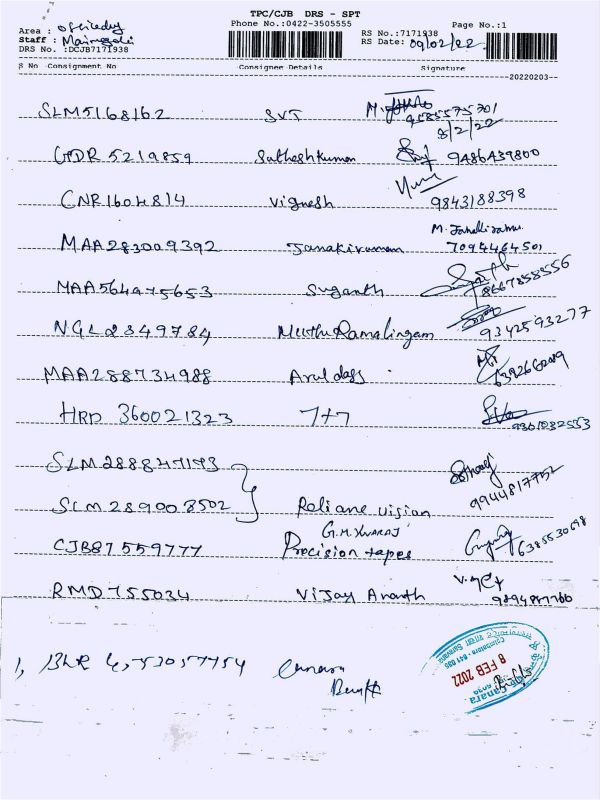 TPC/CJB DRS - SPT
Phone No.:0422-3505555
Page No.:1
Area :
Staff :
DRS No. :DCJB7171938
RS No.:7171938
RS Date: 09/02/22
S No Consignment No Consignee Details Signature
20220203
SLM5168162 SVT 9585575701
8/2/22
5219859 Satheshkumar 9486439800
CNR1604814 Vignesh 9843188398
MAA283009392 Janakiraman M. Janakiraman
7094464501
MAA564975653 Suganth 8667858556
NGL2849784 MuthuRamalingam 9342593277
MAA288734988 Aruldass
HRD 360021323 7+7 9361032553
SLM288847173
SLM289008502 Reliane vision 9944817752
G.M.YUVARAJ
CJB87559777 Precision tapes 6385530698
RMD755034 Vijay Ananth
1, BLR 4553057754 Canara
Bank
Canara
8 FEB 2022
Coimbatore - 641 035